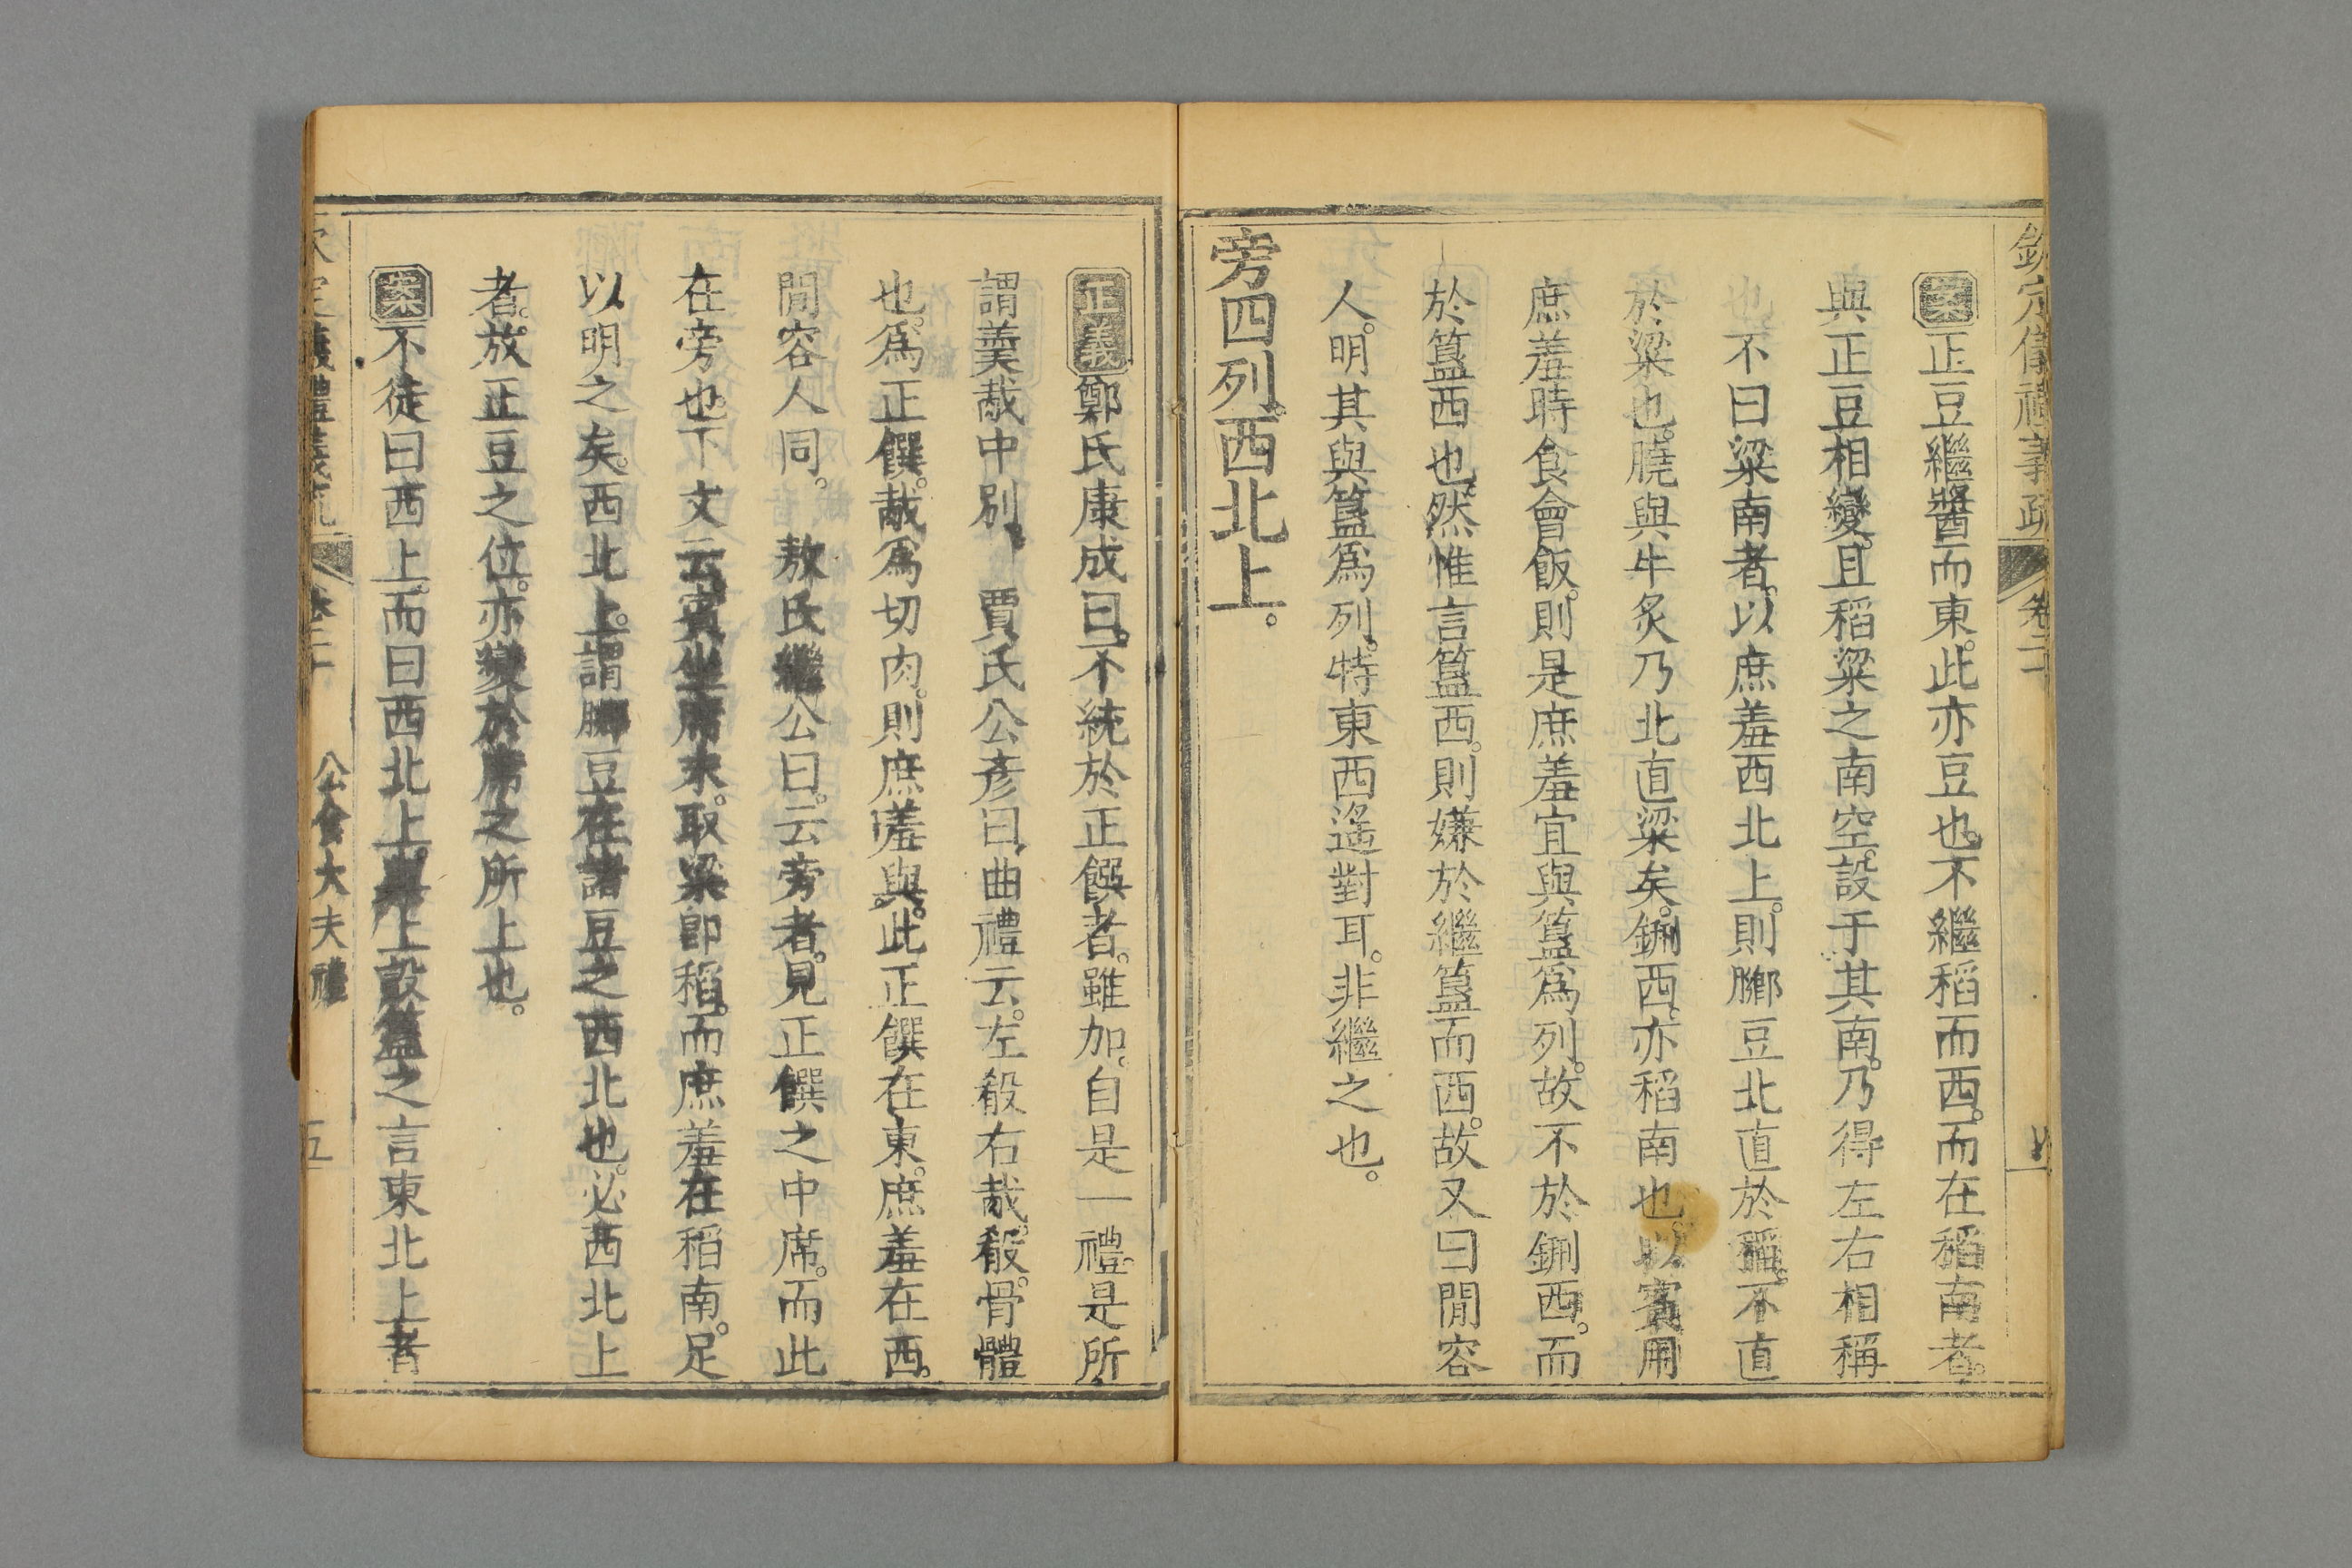 欽定儀禮義疏 卷二十
案正豆繼醬而東。此亦豆也。不繼稻而西。而在稻南者。
與正豆相變。且稻粱之南空。設于其南。乃得左右相稱
也。不曰粱南者。以庶羞西北上。則膷豆北直於稻。不直
於粱也。膮與牛炙乃北直粱矣。鉶西。亦稻南也。以賓用
庶羞時食會飯。則是庶羞宜與簋為列。故不於鉶西。而
於簋西也。然惟言簋西。則嫌於繼簋而西。故又曰閒容
人。明其與簋為列。特東西遙對耳。非繼之也。
旁四列。西北上。
正義鄭氏康成曰。不統於正饌者。雖加。自是一禮。是所
謂羹胾中別。 賈氏公彥曰。曲禮云。左殽右胾。殽。骨體
也。為正饌。胾為切肉。則庶羞與。此正饌在東。庶羞在西。
閒容人同。 敖氏繼公曰。云旁者。見正饌之中席。而此
在旁也。下文云。賓坐席末。取粱即稻。而庶羞在稻南。足
以明之矣。西北上。謂膷豆在諸豆之西北也。必西北上
者。放正豆之位。亦變於席之所上也。
案不徒曰西上。而曰西北上。與上設簋之言東北上者
欽定儀禮義疏 卷二十 公食大夫禮 五